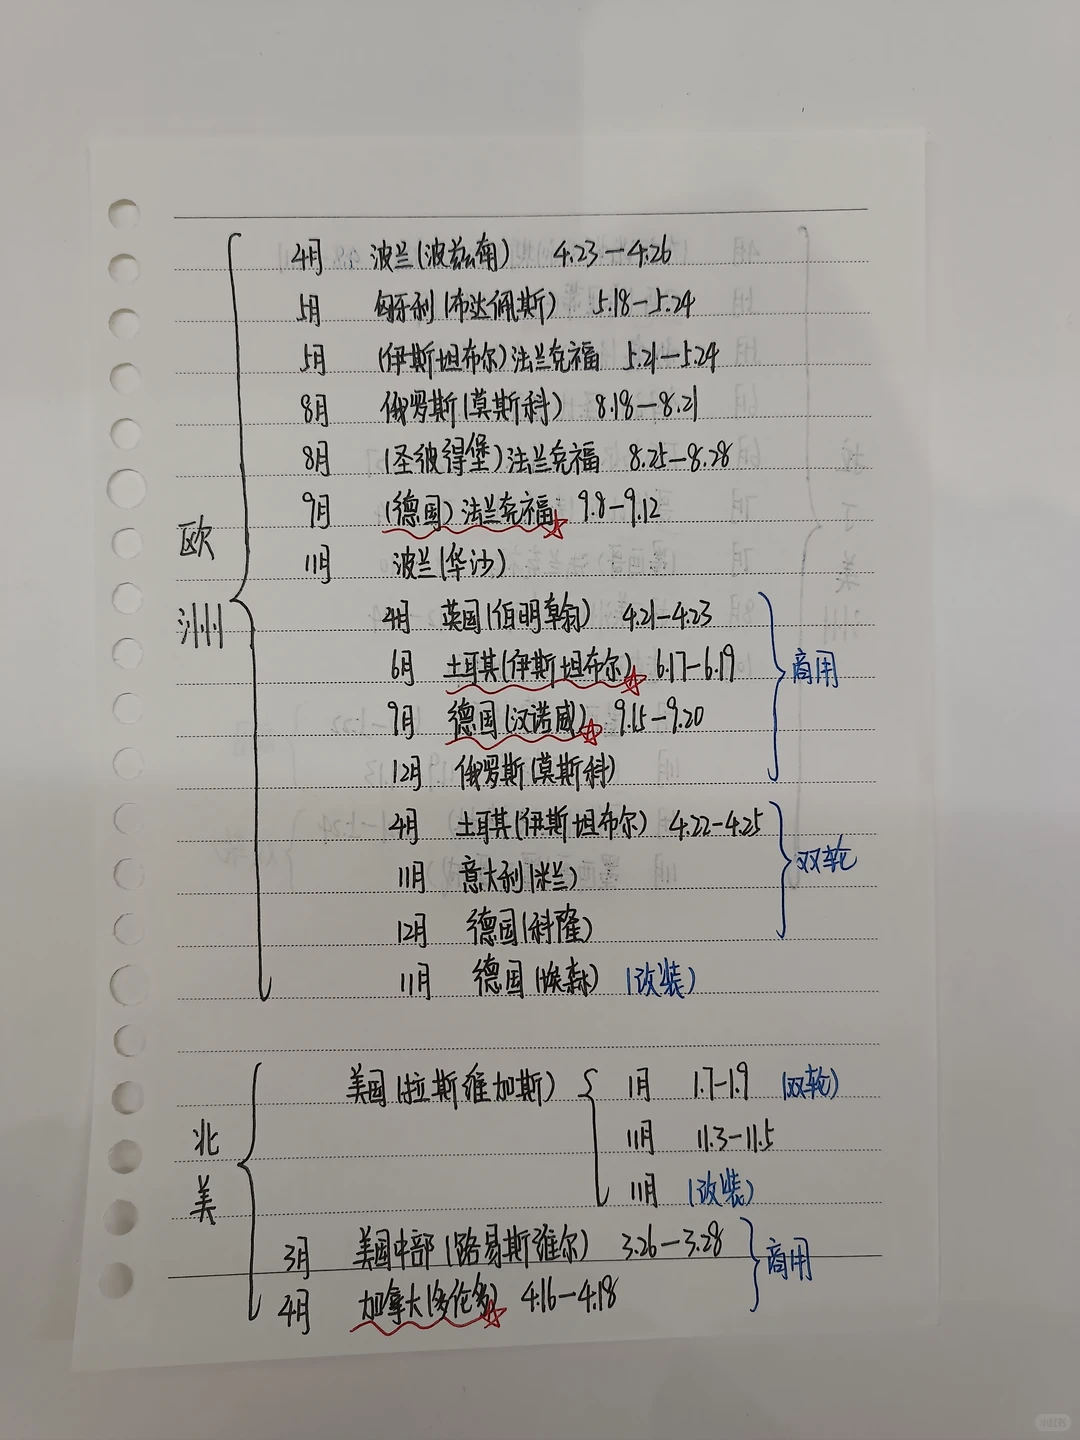 欧洲
4月 波兰(波兹南) 4.23—4.26
5月 匈牙利(布达佩斯) 5.18—5.24
5月 (伊斯坦布尔)法兰克福 5.21—5.24
8月 俄罗斯(莫斯科) 8.18—8.21
8月 (圣彼得堡)法兰克福 8.25—8.28
9月 (德国)法兰克福☆ 9.8—9.12
11月 波兰(华沙)
4月 英国(伯明翰) 4.21—4.23
6月 土耳其(伊斯坦布尔)☆ 6.17—6.19
9月 德国(汉诺威)☆ 9.15—9.20
12月 俄罗斯(莫斯科)
商用
4月 土耳其(伊斯坦布尔) 4.22—4.25
11月 意大利(米兰)
12月 德国(科隆)
双轮
11月 德国(埃森) (改装)
北美
美国(拉斯维加斯)
1月 1.7—1.9 (双轮)
11月 11.3—11.5
11月 (改装)
3月 美国中部(路易斯维尔) 3.26—3.28
4月 加拿大(多伦多)☆ 4.16—4.18
商用
小红书